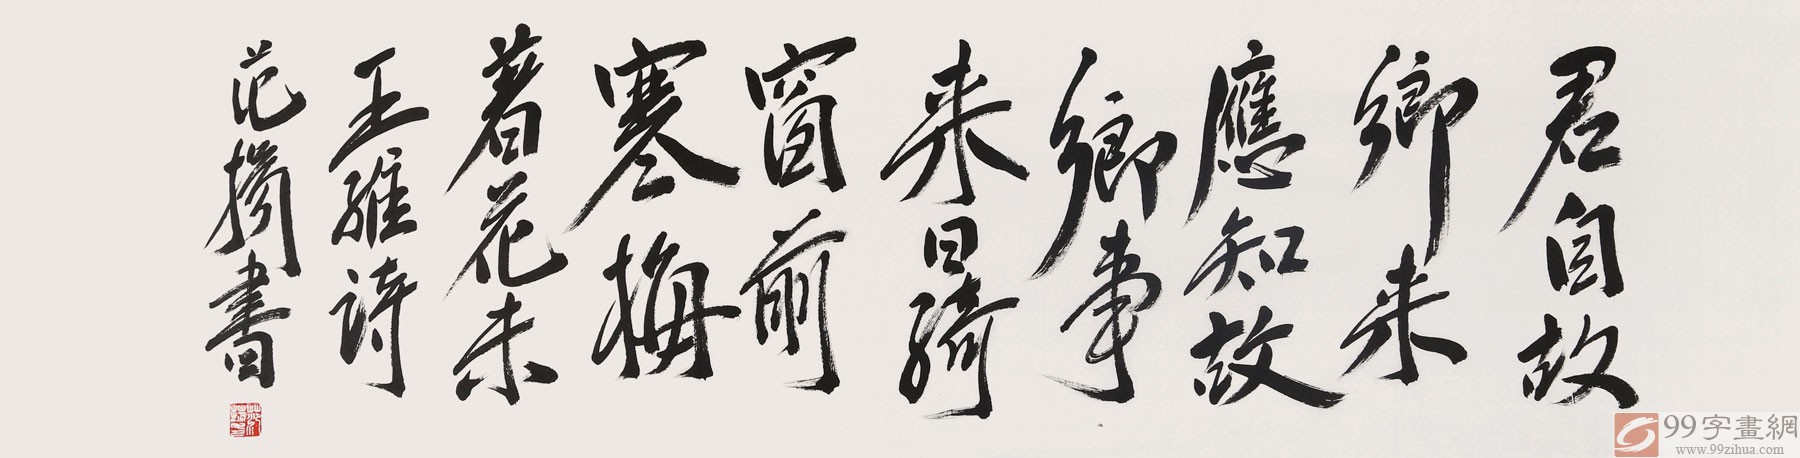 君自故
鄉来
應知故
鄉事
来日綺
窗前
寒梅
著花未
王維詩
范揚書
99字畫網
www.99zihua.com